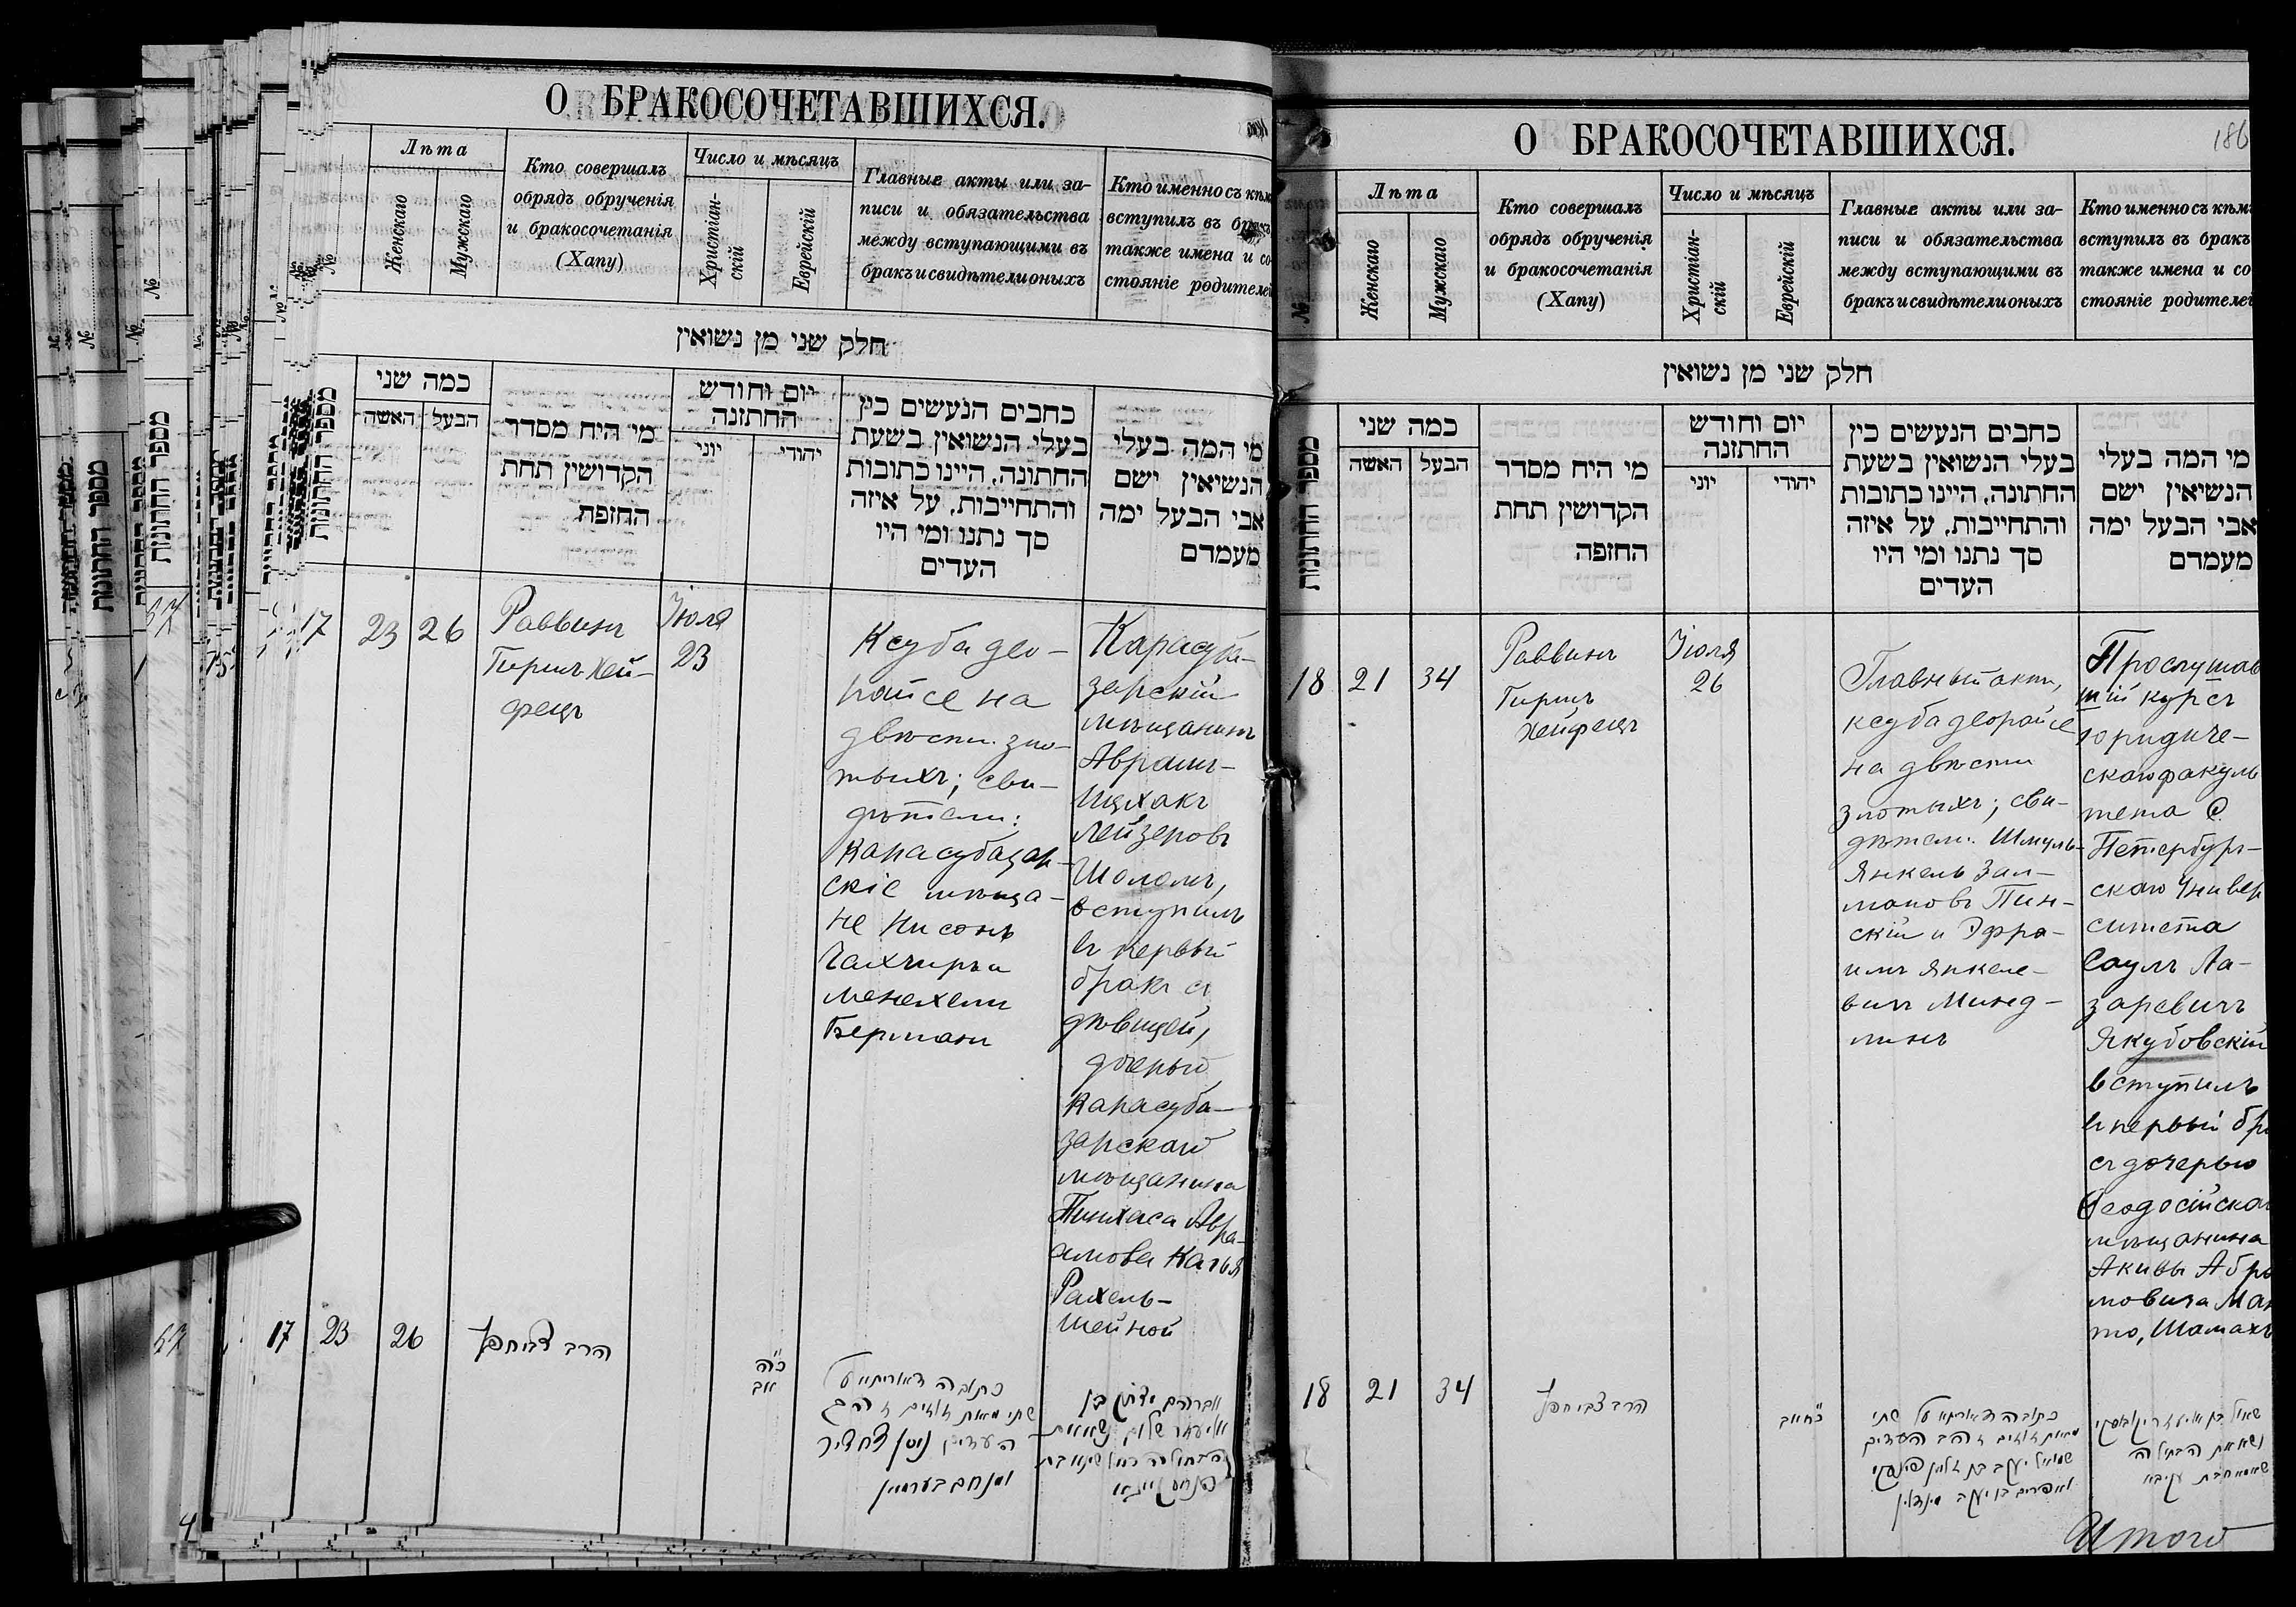 О БРАКОСОЧЕТАВШИХСЯ.
№
Лѣта
Женскаго
Мужскаго
Кто совершалъ
обрядъ обрученія
и бракосочетанія
(Хапу)
Число и мѣсяцъ
Христіан-
скій
Еврейскій
Главные акты или за-
писи и обязательства
между вступающими въ
бракъ и свидѣтели оныхъ
Кто именно съ кѣм
вступилъ въ бракъ
также имена и со
стояніе родителей
חלק שני מן נשואין
מספר החתונות
כמה שני
האשה
הבעל
מי היח מסדר
הקדושין תחת
החופה
יום וחודש
החתונה
יוני
יהודי
כתבים הנעשים בין
בעלי הנשואין בשעת
החתונה, היינו כתובות
והתחייבות, על איזה
סך נתנו ומי היו
העדים
מי המה בעלי
הנשיאין ישם
אבי הבעל ימה
מעמדם
17
23
26
Раввинъ
Гиршъ Хей-
фецъ
Іюля
23
Ксуба део-
райсе на
двѣсти зло-
тыхъ; сви-
дѣтели:
Карасубазар-
скіе мѣща-
не Нисонъ
Чахчиръ и
Менахем
Берманъ
Карасуба-
зарскій
мѣщанинъ
Аврамъ-
Ицхакъ
Лейзеровъ
Шоломъ,
вступилъ
въ первый
бракъ съ
дѣвицей,
дочерью
Карасуба-
зарскаго
мѣщанина
Пинхаса Авра-
амова
Рахель-
Шейной
17
23
26
הרב צבי חפץ
כ"ה
אב
כתובה דאורייתא על
שתי מאות זוזים זהב
העדים ניסן צחציר
ומנחם בערמאן
אברהם יצחק בן
אליעזר שלום נשא את
הבתולה רחל שיינא בת
פנחס
О БРАКОСОЧЕТАВШИХСЯ.
186
№
Лѣта
Женскаго
Мужскаго
Кто совершалъ
обрядъ обрученія
и бракосочетанія
(Хапу)
Число и мѣсяцъ
Христіан-
скій
Еврейскій
Главные акты или за-
писи и обязательства
между вступающими въ
бракъ и свидѣтели оныхъ
Кто именно съ кѣмъ
вступилъ въ бракъ
также имена и со
стояніе родителей
חלק שני מן נשואין
מספר החתונות
כמה שני
האשה
הבעל
מי היח מסדר
הקדושין תחת
החופה
יום וחודש
החתונה
יוני
יהודי
כתבים הנעשים בין
בעלי הנשואין בשעת
החתונה, היינו כתובות
והתחייבות, על איזה
סך נתנו ומי היו
העדים
מי המה בעלי
הנשיאין ישם
אבי הבעל ימה
מעמדם
18
21
34
Раввинъ
Гиршъ
Хейфецъ
Іюля
26
Главный актъ,
ксуба деорайсе
на двѣсти
злотыхъ; сви-
дѣтели: Шмуль-
Янкель Зал-
мановъ Пин-
скій и Эфра-
имъ Янкеле-
вичъ Минд-
линъ
Прослушав
шій курсъ
юридиче-
скаго факуль
тета С.
Петербург-
скаго Универ
ситета
Саулъ Ла-
заревичъ
Якубовскій
вступилъ
въ первый бра
съ дочерью
Ѳеодосійскаго
мѣщанина
Акивы Абра
мовича Ман
то, Шамахъ
18
21
34
הרב צבי חפץ
כ"ח אב
כתובה דאורייתא על שתי
מאות זוזים זהב העדים
שמואל יעקב בן זלמן פינסקי
ואפרים בן יעקב מינדלין
שאול בן אליעזר יקובסקי
נשא את הבתולה
בת עקיבא
Итого